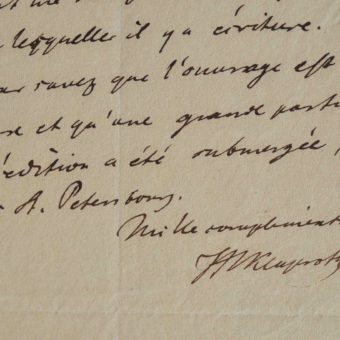 lesquelles il y a écriture.
savez que l'ouvrage est
et qu'une grande partie
l'édition a été submergée,
St. Petersbourg.
Mille compliments
JKlaproth